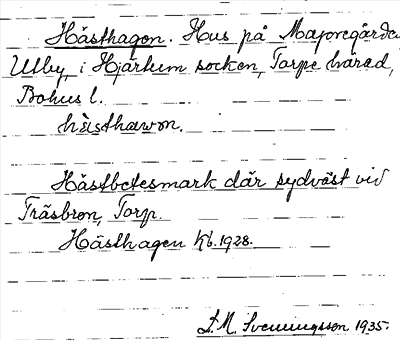 Hästhagen. Hus på Majoregårde
Utby, i Hjärtum socken, Torpe härad,
Bohus l.
hästhawɷn.
Hästbetesmark där sydväst vid
Träsbron, Torp.
Hästhagen Kb. 1928.
S. M. Svenningsson 1935.